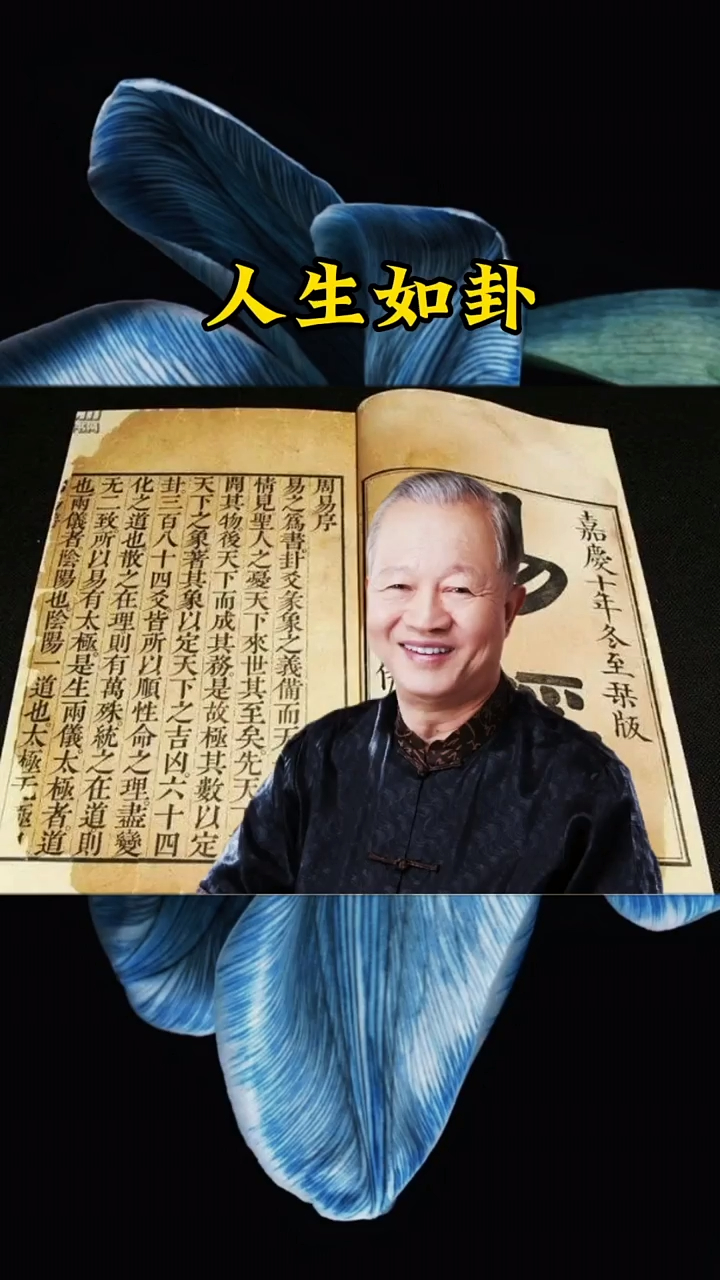 人生如卦
周易序
易之爲書卦爻彖象之義備而天
情見聖人之憂天下來世其至矣先天
開其物後天下而成其務是故極其數以定
天下之象著其象以定天下之吉凶六十四
卦三百八十四爻皆所以順性命之理盡變
化之道也散之在理則有萬殊統之在道則
无二致所以易有太極是生兩儀太極者道
也兩儀者陰陽也陰陽一道也太極无極
嘉慶十年冬至栞版